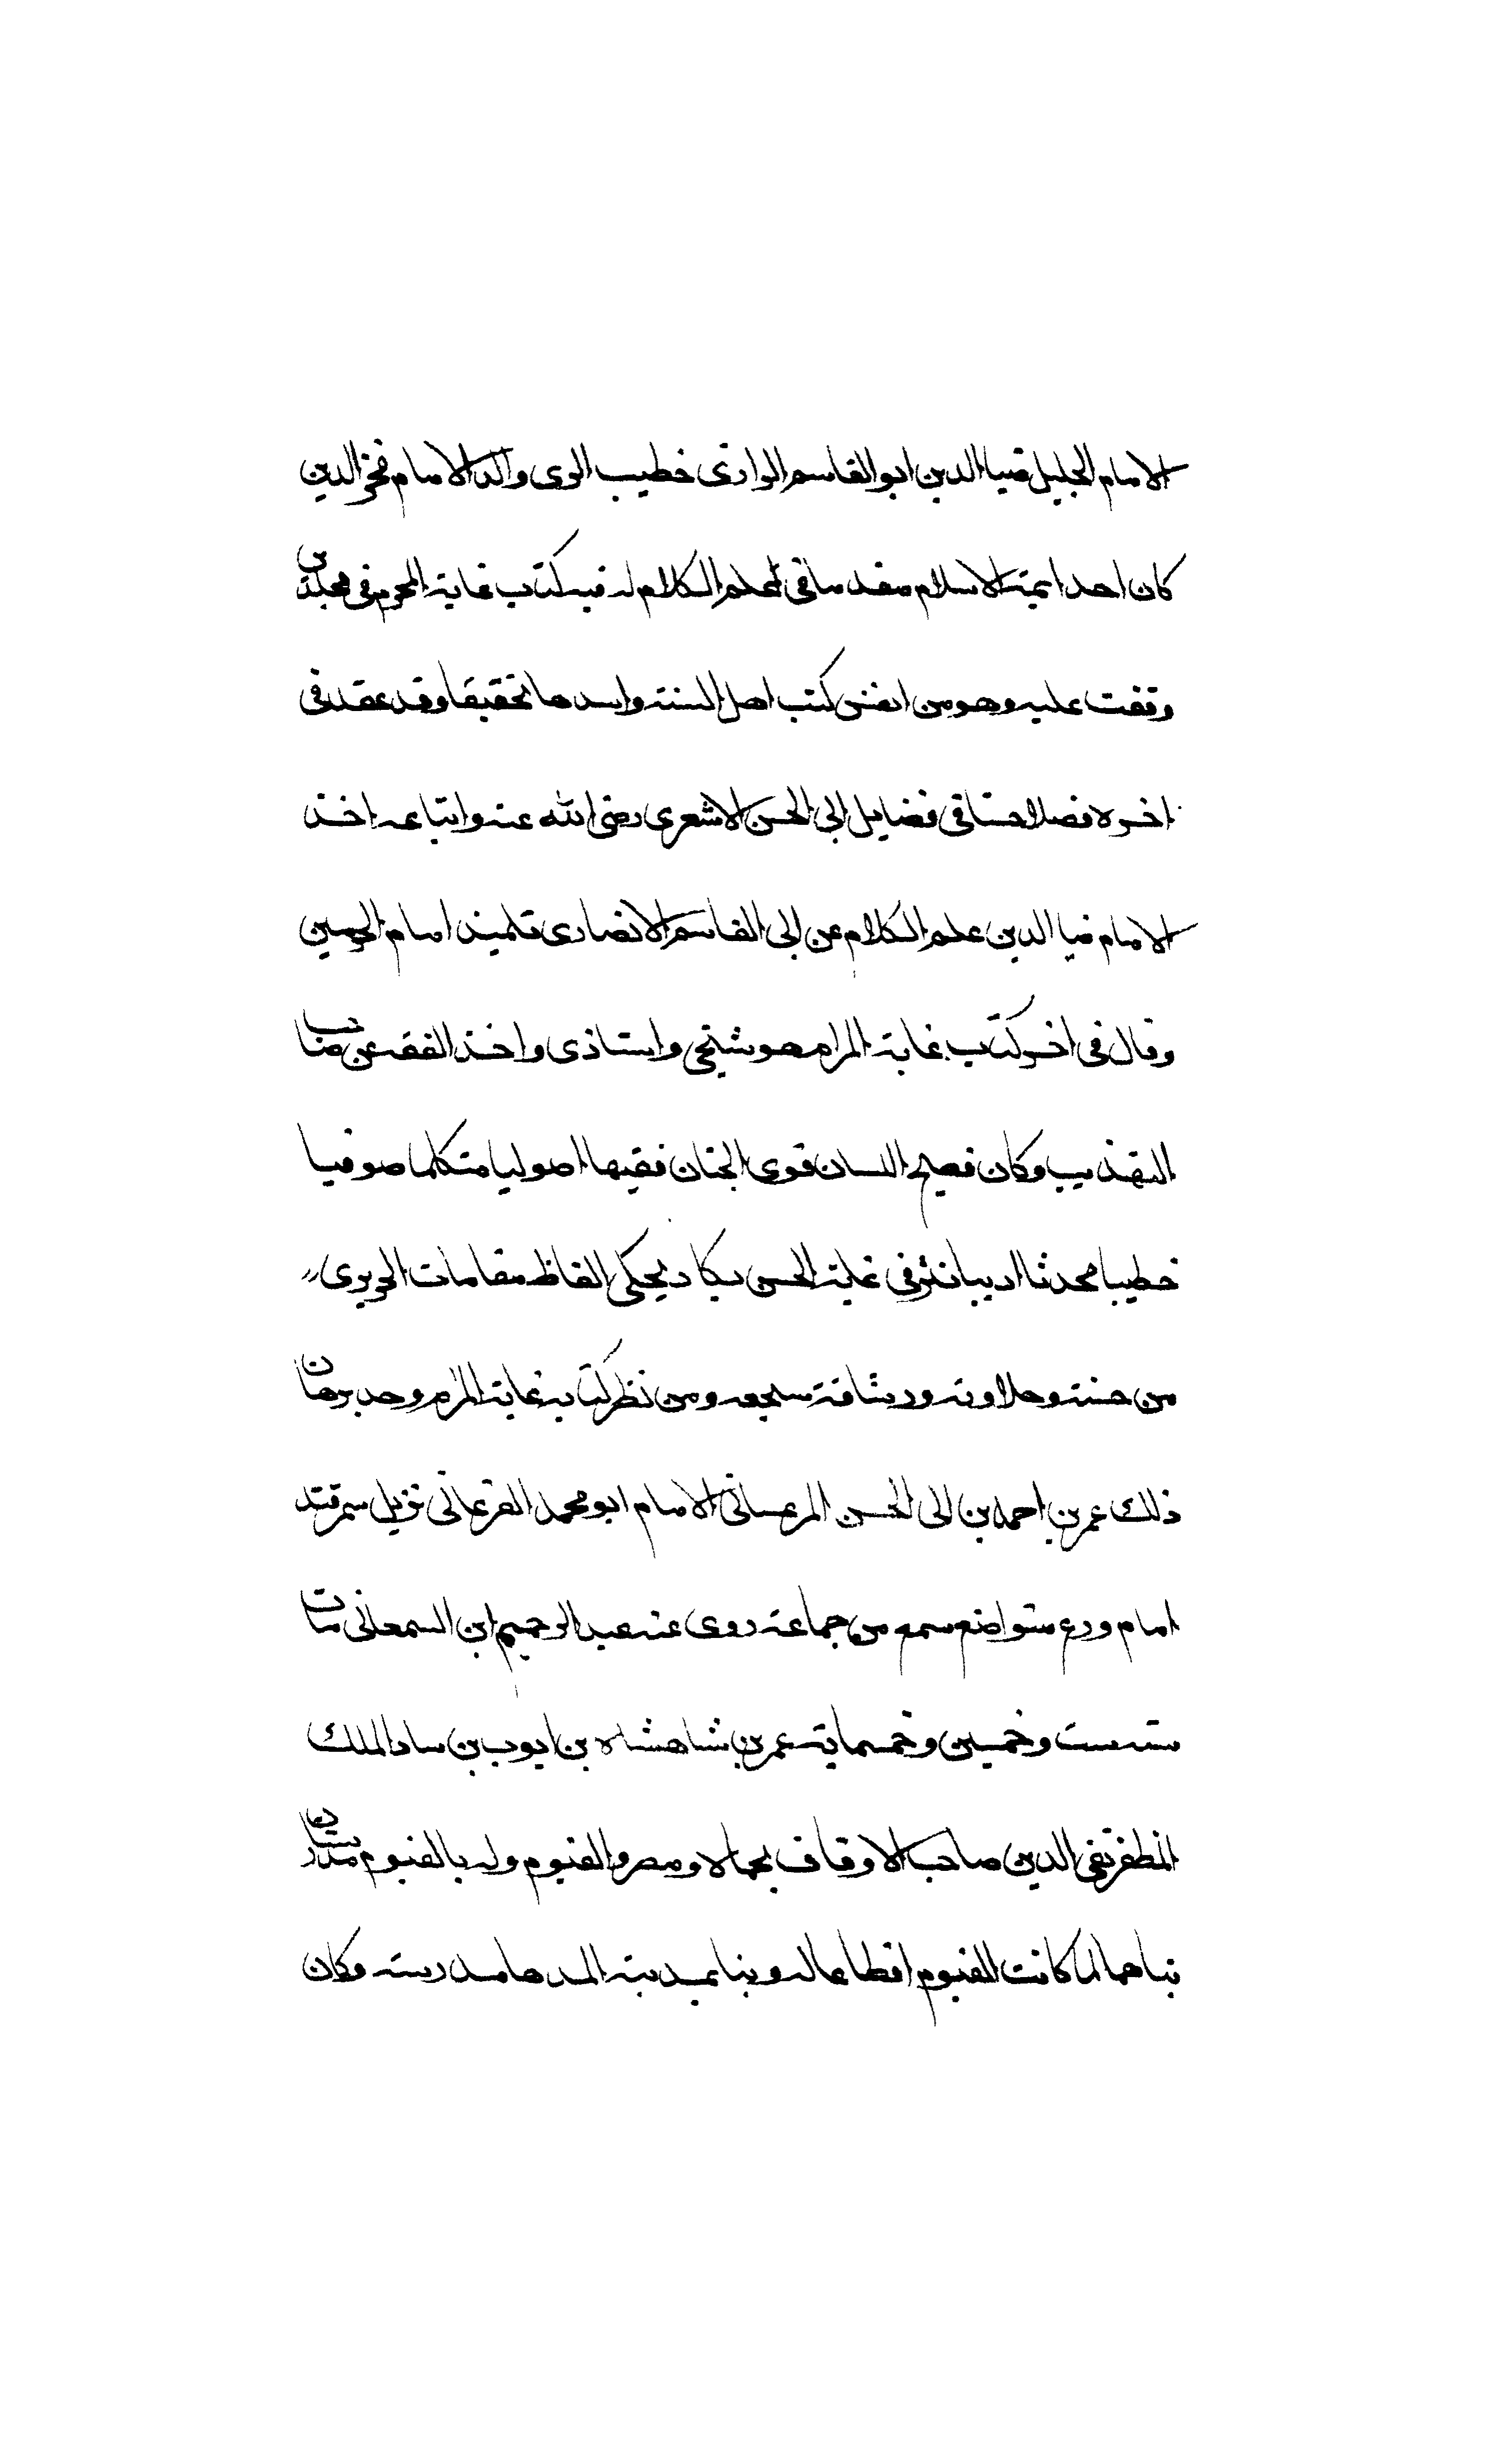 الامام الجليل ضيا الدين ابو القاسم الرازى خطيب الرى والد الامام فخر الدين
كان احد ايمة الاسلام مقدما فى علم الكلام له فيه كتاب غاية المرام فى مجلدين
وقفت عليه وهو من انفس كتب اهل السنة واسدها تحقيقا وقد عقد فى
اخره فصلا حسنا فى فضايل ابى الحسن الاشعرى رضى الله عنه واتباعه اخذ
الامام ضيا الدين علم الكلام عن ابى القاسم الانصارى تلميذ امام الحرمين
وقال فى اخر كتاب غاية المرام هو شيخى واستاذى واخذ الفقه عن صاحب
التهذيب وكان فصيح اللسان قوى الجنان فقيها اصوليا متكلما صوفيا
خطيبا محدثا اديبا نثره فى غاية الحسن يكاد يحكى الفاظ مقامات الحريرى
من حسنه وحلاوته ورشاقة سجعه ومن نظر كتابه غاية المرام وجد برهان
ذلك عمر بن احمد بن ابى الحسن الامام ابو محمد الفرغانى نزيل سمرقند
امام ورع متواضع سمع من جماعة روى عنه عبد الرحيم ابن السمعانى مات
سنة ست وخمسين وخمسماية عمر بن شاهنشاه بن ايوب بن شاد الملك
المظفر تقى الدين صاحب الاوقاف بحماة ومصر والفيوم وله بالفيوم مدرستان
بناهما لما كانت الفيوم اقطاعا له وبنا بمدينة الرها مدرسة وكان